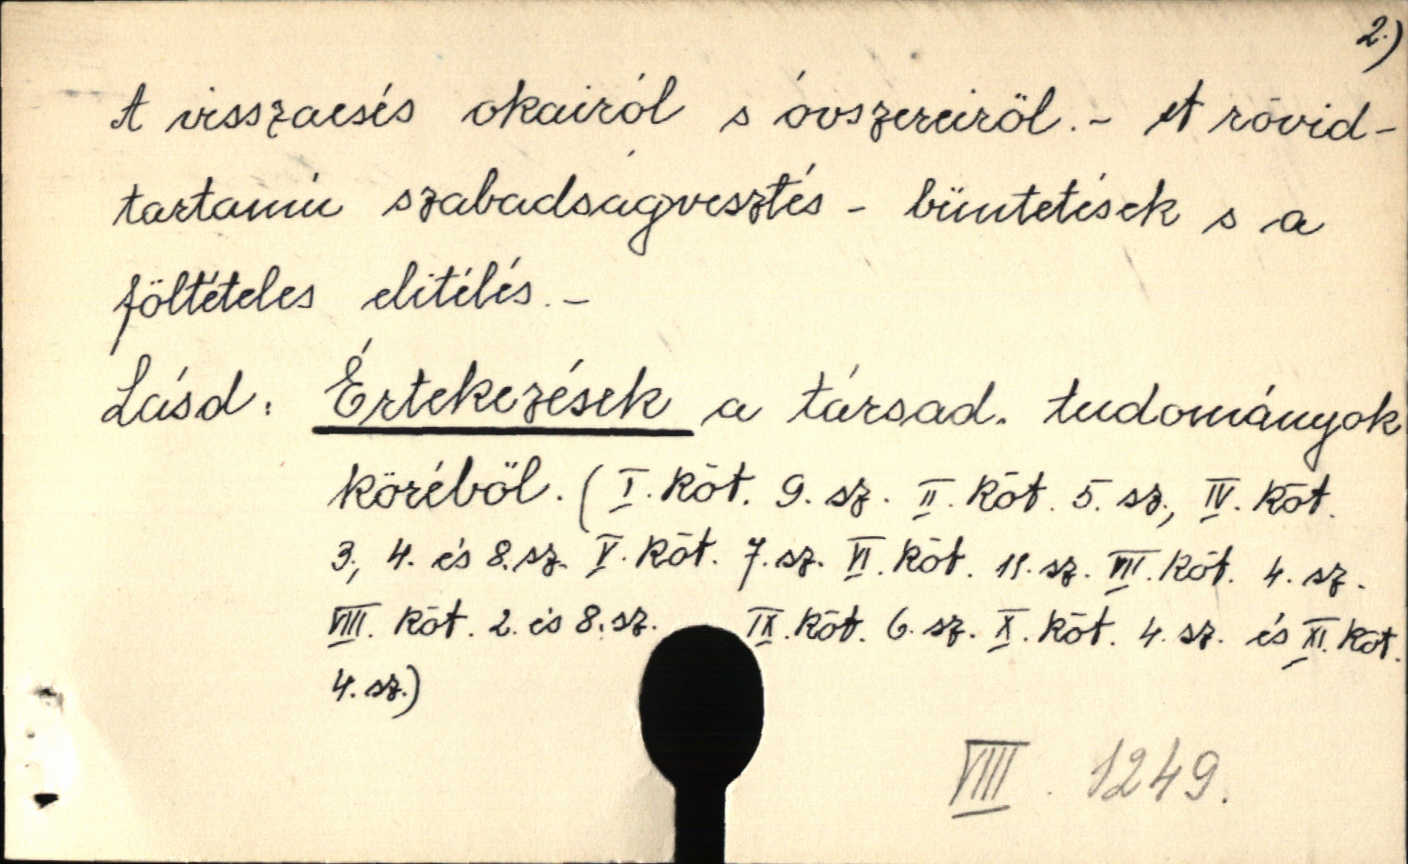 2.)
A visszaesés okairól s óvszereiröl. - A rövid-
tartamú szabadságvesztés - büntetések s a
föltételes elitélés. -
Lásd: Értekezések a társad. tudományok
köréböl. (I. köt. 9. sz. II. köt. 5. sz., IV. köt.
3., 4. és 8. sz. V. köt. 7. sz. VI. köt. 11. sz. VII. köt. 4. sz.
VIII. köt. 2. és 8. sz. IX. köt. 6. sz. X. köt. 4. sz. és XI. köt.
4. sz.)
VIIII. 1249.